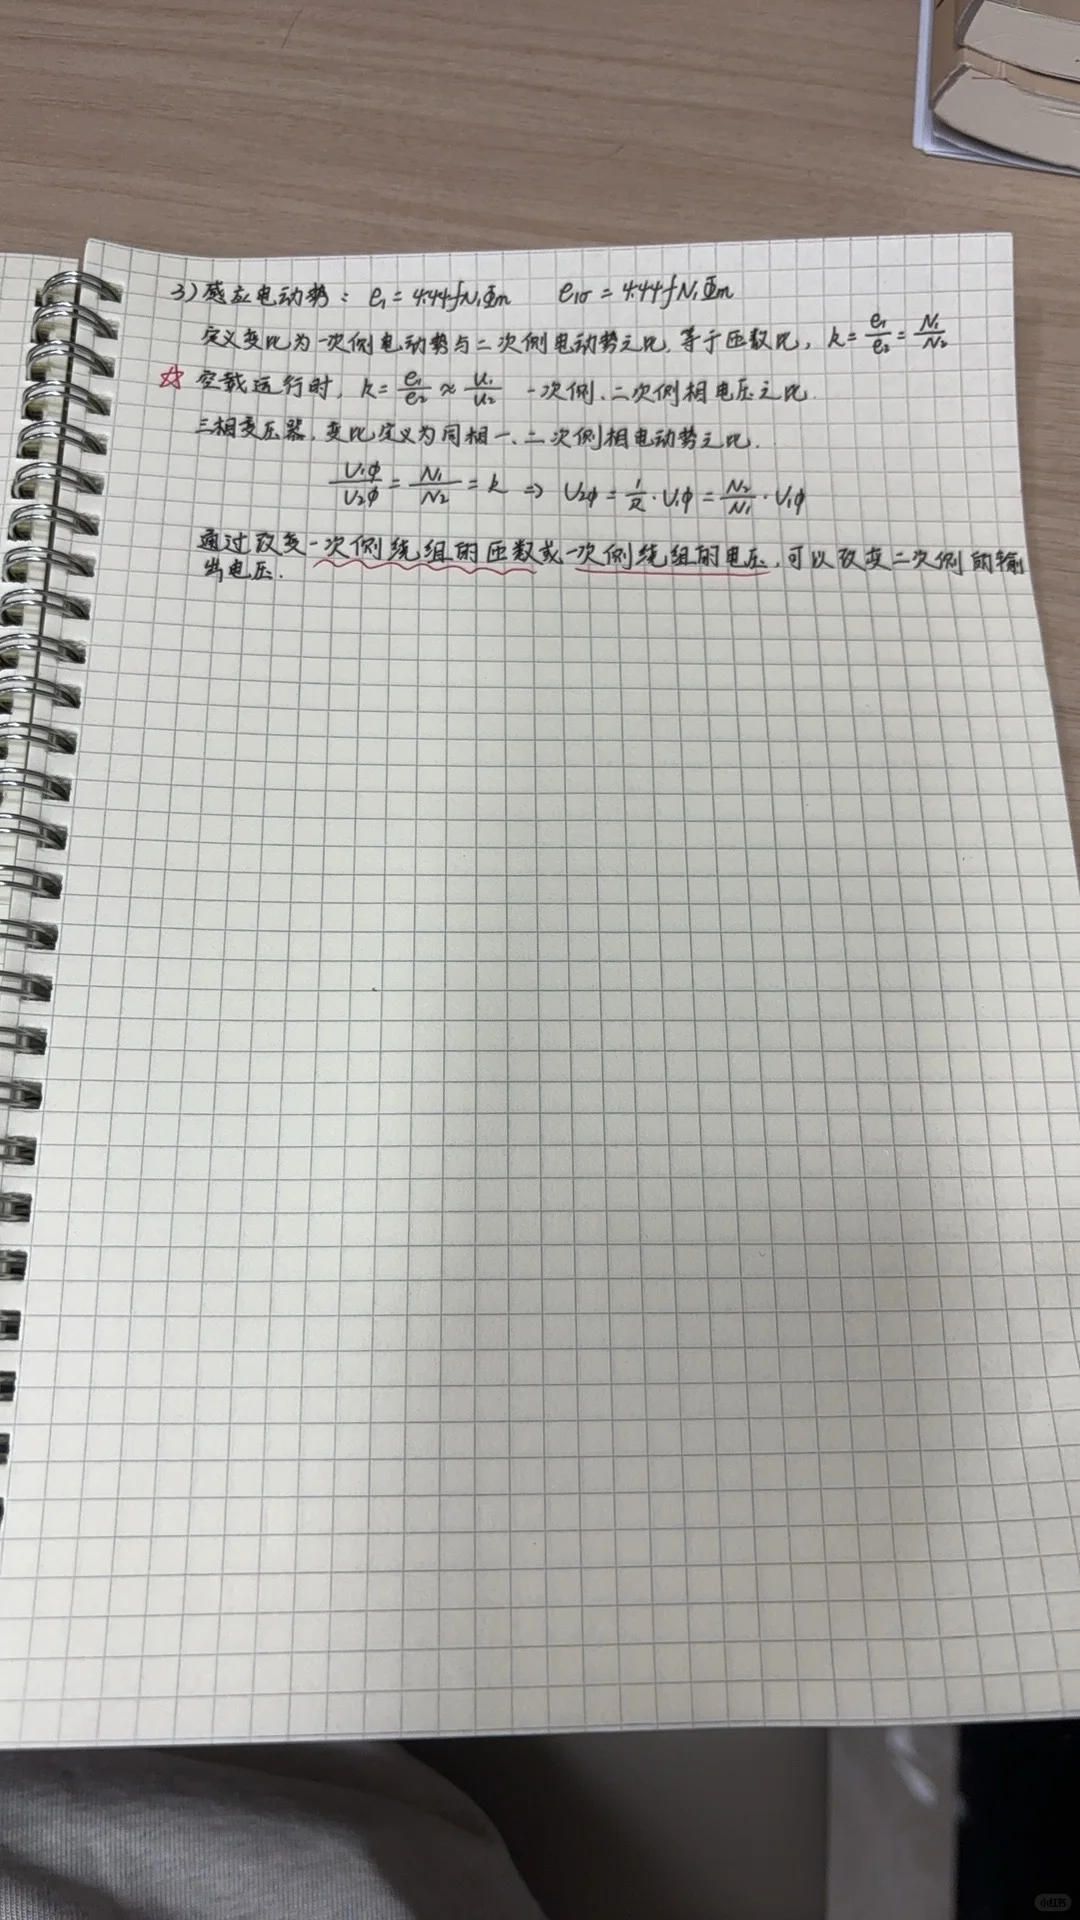 3) 感应电动势： e₁ = 4.44fN₁Φm e₁σ = 4.44fN₁Φm
定义变比为一次侧电动势与二次侧电动势之比, 等于匝数比, k = e₁/e₂ = N₁/N₂
☆ 空载运行时, k = e₁/e₂ ≈ U₁/U₂ 一次侧、二次侧相电压之比.
三相变压器, 变比定义为同相一、二次侧相电动势之比.
U₁φ/U₂φ = N₁/N₂ = k ⇒ U₂φ = 1/k · U₁φ = N₂/N₁ · U₁φ
通过改变一次侧绕组的匝数或一次侧绕组的电压, 可以改变二次侧的输
出电压.
小红书